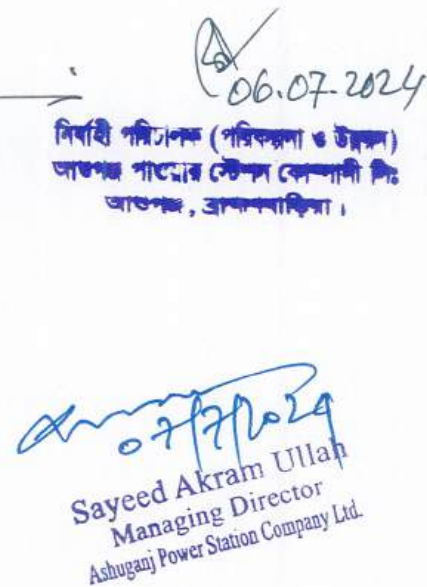 06.07.2024
নির্বাহী পরিচালক (পরিকল্পনা ও উন্নয়ন)
আশুগঞ্জ পাওয়ার স্টেশন কোম্পানী লিঃ
আশুগঞ্জ, ব্রাহ্মণবাড়িয়া।
07/7/2024
Sayeed Akram Ullah
Managing Director
Ashuganj Power Station Company Ltd.